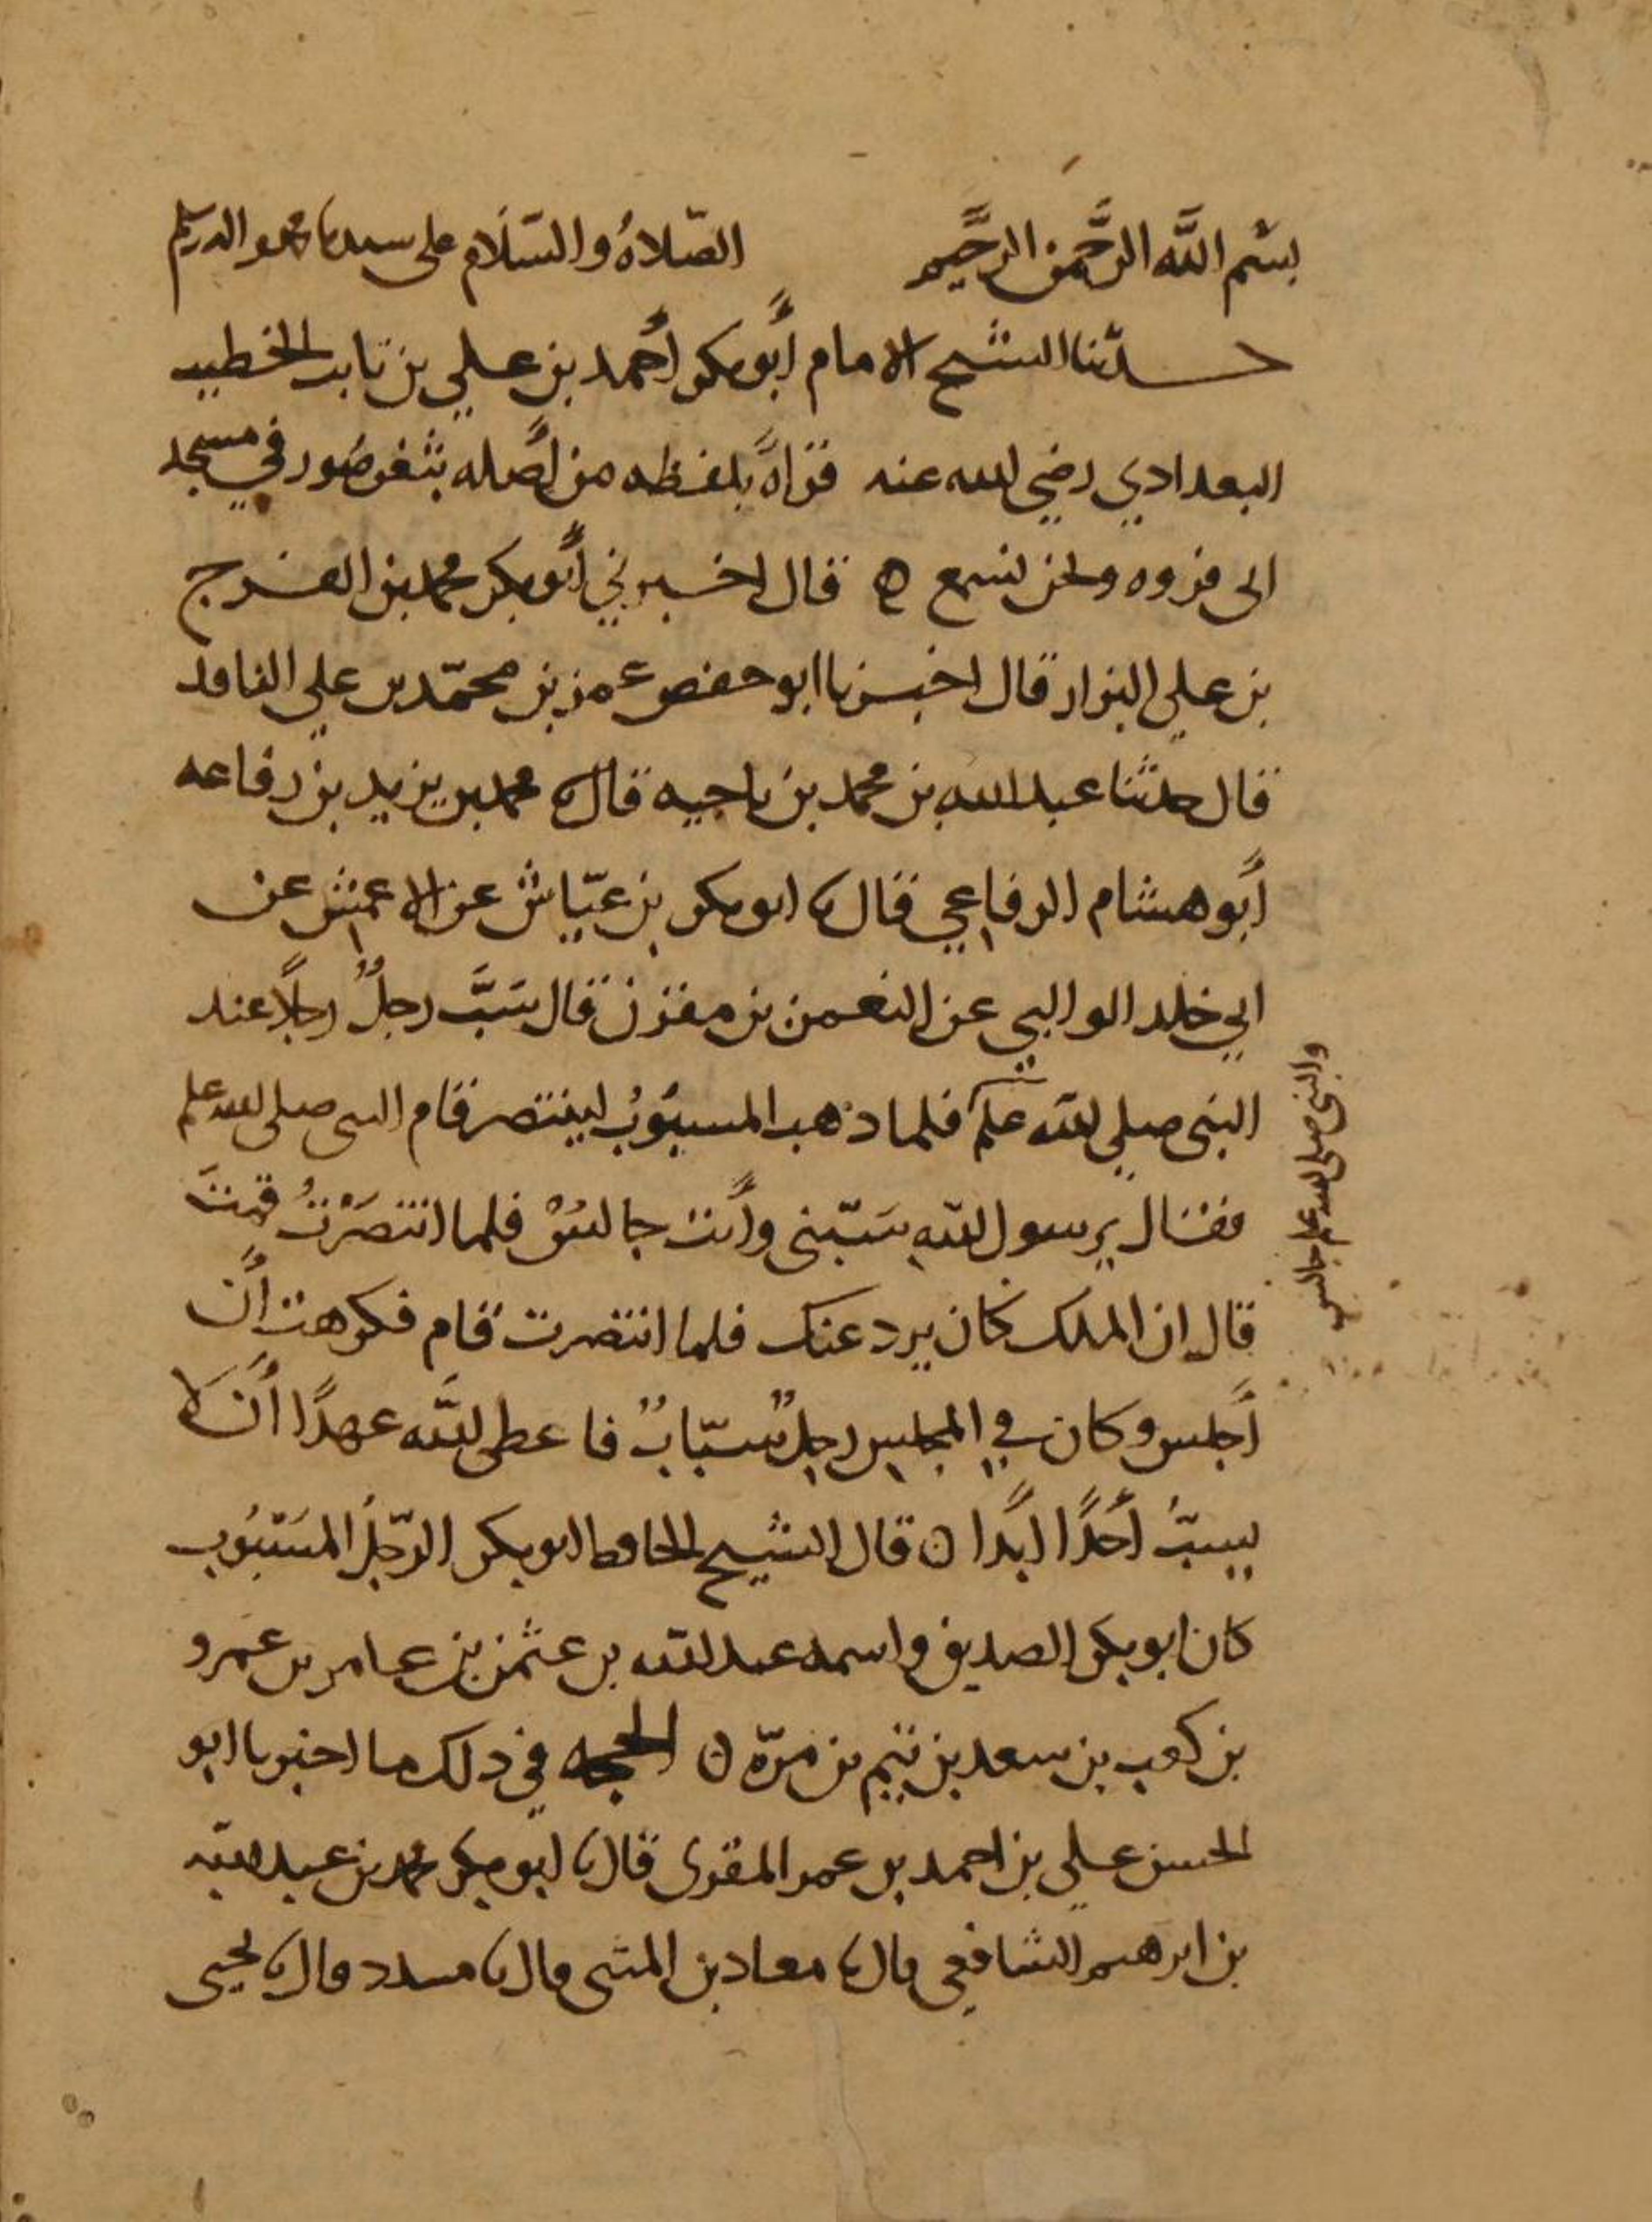 بسم الله الرَّحمن الرَّحيم الصّلاةُ والسّلام على سيدنا محمد واله وسلم
حدثنا الشيخ الامام أبو بكر أحمد بن علي بن ثابت الخطيب
البغدادي رضي الله عنه قراةً بلفظه من أصله بثغر صُور في مسجد
ابي فروه ونحن نسمع ه قال اخبرني أبو بكر محمد بن الفرج
بن علي البزار قال اخبرنا ابو حفص عمر بن محمّد بن علي الناقد
قال حدثنا عبد الله بن محمد بن ناجيه قال نا محمد بن يزيد بن رفاعه
أبو هشام الرفاعي قال نا ابو بكر بن عيّاش عن الاعمش عن
ابي خلد الوالبي عن النعمن بن مقرن قال سَبَّ رجلٌ رجلًا عند
النبي صلى الله علم فلما ذهب المسبُوبُ لينتصر قام النبي صلى الله علم
والنبي صلى الله علم جالس
فقال يرسول الله سَبّني وأنت جالسٌ فلما انتصَرْتُ قمتَ
قال ان الملك كان يرد عنك فلما انتصرت قام فكرهت أن
أجلس وكان في المجلس رجلٌ سبّابٌ فاعطى اللَّه عهدًا أن لا
يسبّ أحدًا ابدًا ه قال الشيخ الحافظ ابو بكر الرّجلُ المسَبُوب
كان ابو بكر الصديق واسمه عبد الله بن عثمن بن عامر بن عمرو
بن كعب بن سعد بن تيم بن مرّه ه الحجه في ذلك ما اخبرنا ابو
الحسن علي بن احمد بن عمر المقرى قال نا ابو بكر محمد بن عبد الله
بن ابرهيم الشافعي قال نا معاذ بن المثنى قال نا مسدد قال نا يحيى